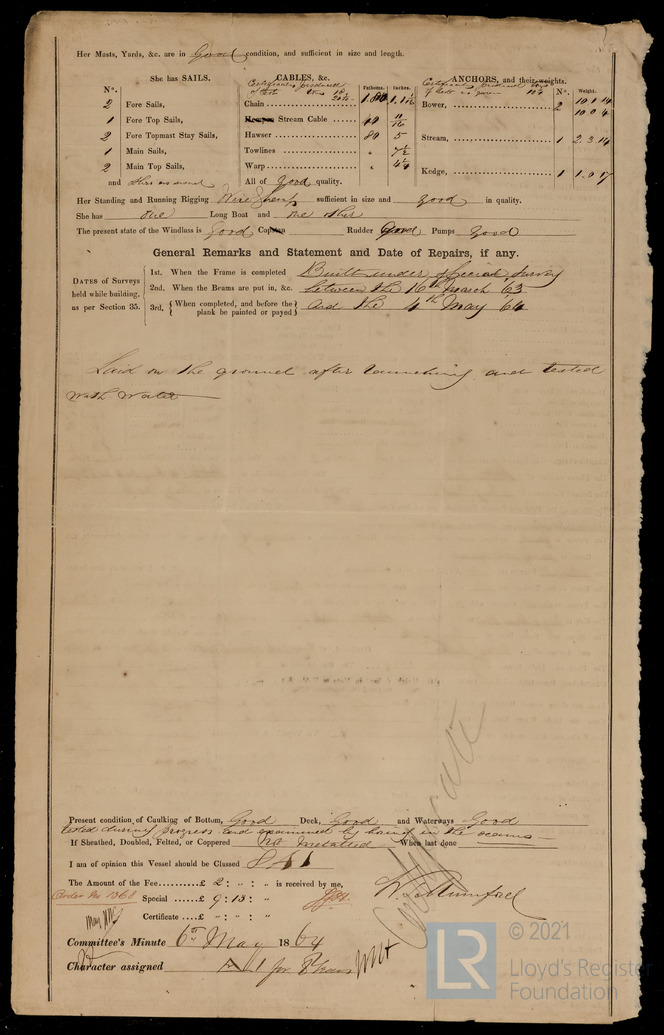 Her Masts, Yards, &c. are in Good condition, and sufficient in size and length.
She has SAILS.
CABLES, &c.
ANCHORS, and their weights.
Nº.
Certificates produced
Fathoms.
Inches.
Nº.
Weight.
2 Fore Sails,
Chain 180 1.1/16
Bower, 2 10.1.14
10.0.4
1 Fore Top Sails,
Stream Cable 40 11/16
2 Fore Topmast Stay Sails,
Hawser 80 5
Stream, 1 2.3.14
1 Main Sails,
Towlines " 7½
2 Main Top Sails,
Warp " 4½
Kedge, 1 1.0.17
and others as usual
All of Good quality.
Her Standing and Running Rigging Wire & hemp sufficient in size and good in quality.
She has One Long Boat and one other
The present state of the Windlass is Good Capstan Rudder Good Pumps Good
General Remarks and Statement and Date of Repairs, if any.
DATES of Surveys held while building, as per Section 35.
1st. When the Frame is completed Built under Special Survey
2nd. When the Beams are put in, &c. between the 16th March '63
3rd, {When completed, and before the plank be painted or payed} and the 4th May '64
Laid on the ground after launching and tested
with water
Present condition of Caulking of Bottom, Good Deck, Good and Waterways Good
tested during progress and examined by boring in the seams
If Sheathed, Doubled, Felted, or Coppered No Metalled When last done
I am of opinion this Vessel should be Classed
The Amount of the Fee...........£ 2 : " : " is received by me,
Order No 1368
Special ......£ 9 : 13 : "
W. Mumford
Certificate ....£ " : " : "
Committee's Minute 6th May 1864
Character assigned A 1 for years
© 2021
LR
Lloyd's Register
Foundation